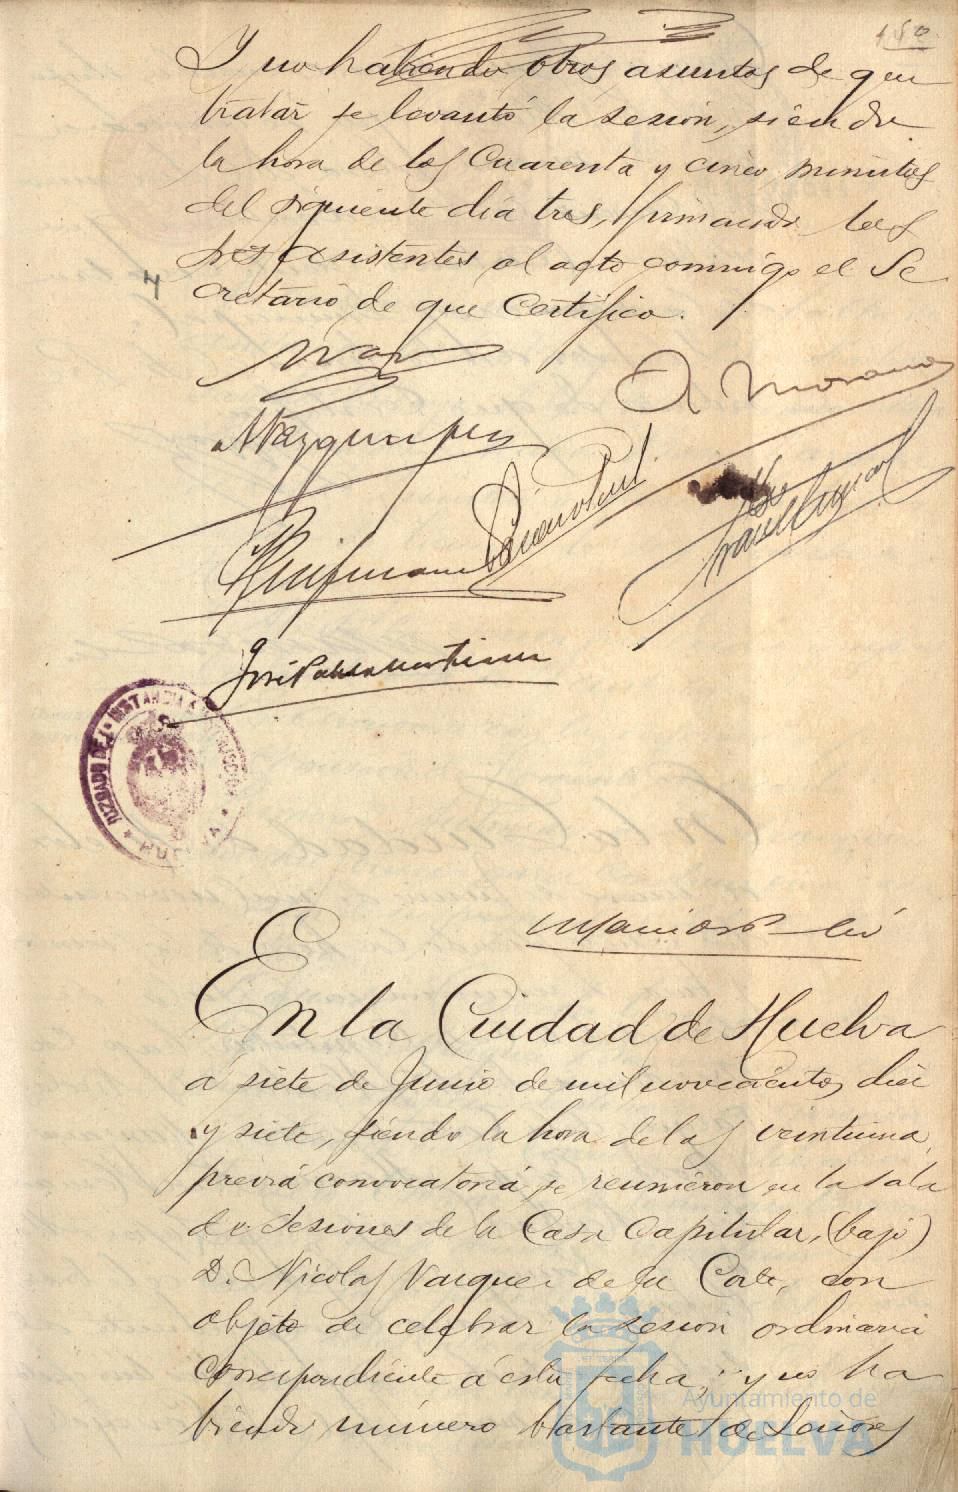 150
Y no habiendo otros asuntos de que
tratar se levantó la sesión, siendo
la hora de las cuarenta y cinco minutos
del siguiente dia tres, firmando los
Sres asistentes al acto conmigo el Se
cretario de que Certifico.
A Morano
JUZGADO DE 1ª INSTANCIA E INSTRUCCION
* HUELVA *
En la Ciudad de Huelva
á siete de Junio de mil novecientos diez
y siete, siendo la hora de las veintiuna,
previa convocatoria se reunieron en la sala
de Sesiones de la Casa Capitular, (bajo)
D. Nicolas Vazquez de la Corte, con
objeto de celebrar la sesión ordinaria
correspondiente á esta fecha; y no ha
biendo número bastante de Señores
Ayuntamiento de
HUELVA